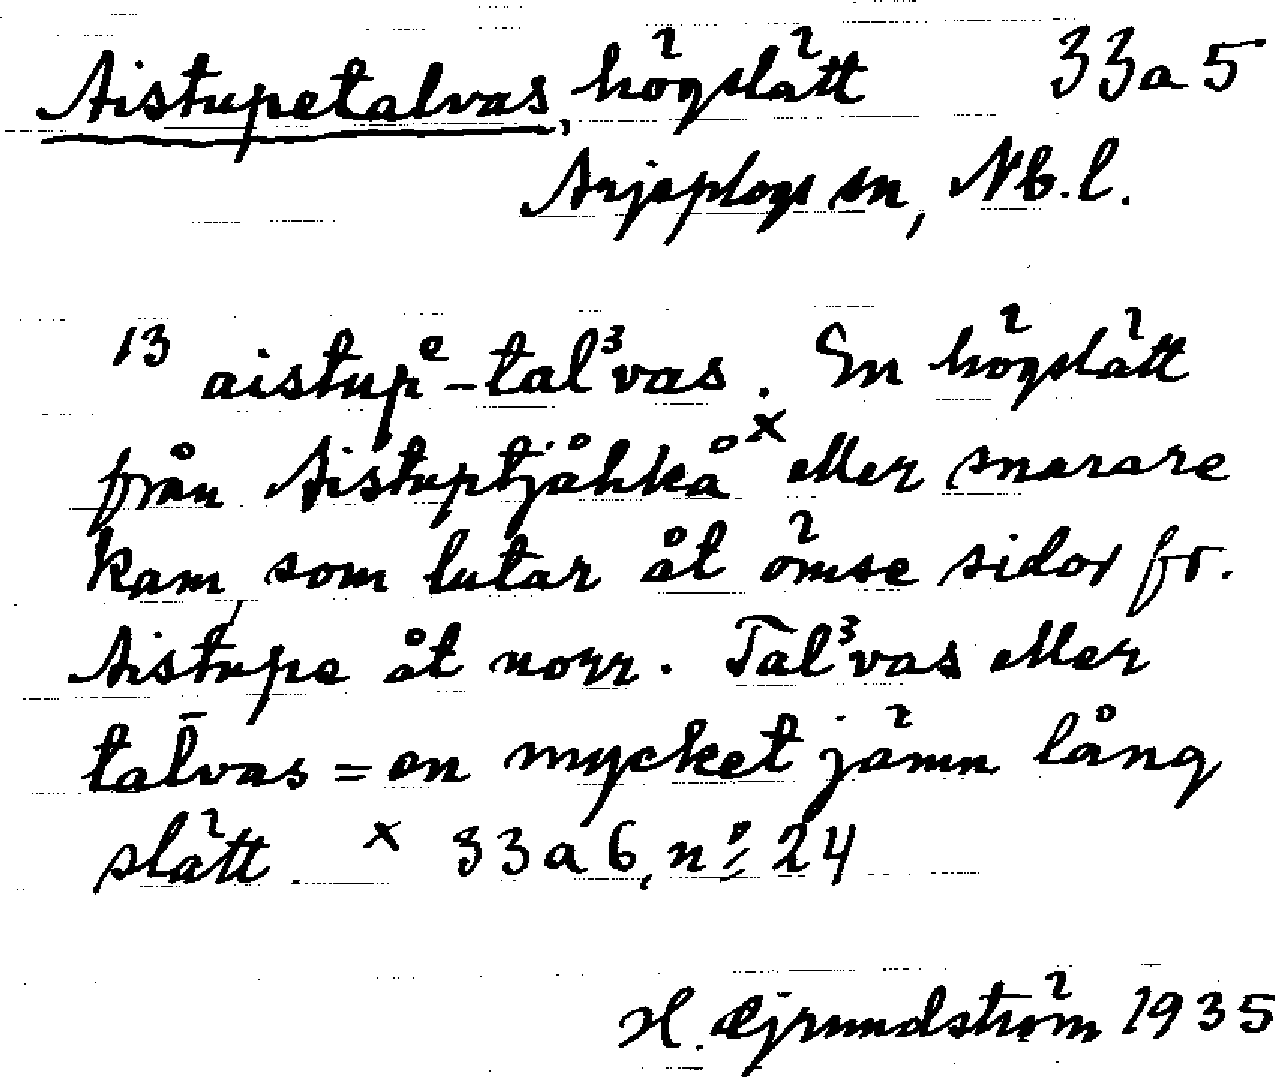 Aistupetalvas, högslätt 33a5
Arjeplogs sn, Nb.l.
13 aistupᵉ-tal³vas. En högslätt
från Aistuptjåhkåˣ eller snarare
kam, som lutar åt ömse sidor fr.
Aistupe åt norr. Tal³vas eller
tal̄vas = en mycket jämn lång
slätt. x 33a6, nº 24
H. Grundström 1935